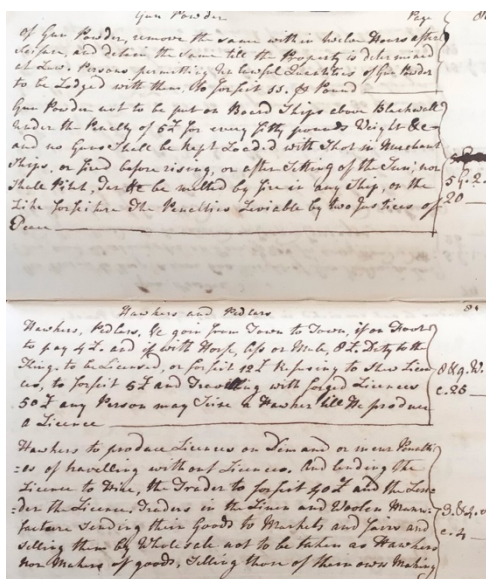 Gun Powder Page
of Gun Powder, remove the same within twelve Hours after
Seisure, and detain the same till the Property is determined
at Law. Persons permitting Unlawful Quantities of Gun Powder
to be Lodged with them to forfeit 5s. ⅌ Pound
Gun Powder not to be put on Board Ships above Blackwall
under the Penalty of 5£ for every fifty pounds Weight &c
and no Guns Shall be kept Loaded with Shot in Merchant
Ships, or fired before rising, or after Setting of the Sun; nor
Shall Pitch, Tar &c be melted by fire in any Ship, or the
5 G. 2.
Like forfeiture The Penalties Leviable by two Justices of
20
Peace
Hawkers and Pedlers
Hawkers, Pedlers, &c goin from Town to Town, if on Foot
to pay 4£. and if with Horse, Ass or Mule, 8£ Duty to the
King. to be Licensed, or forfeit 12£ Refusing to Shew Licen
8 & 9. W.
ces, to forfeit 5£ and Travelling with forged Licences
c. 25
50£ any Person may Seise a Hawker till He produce
a Licence
Hawkers to produce Licences on Demand or incur Penalti
=es of travelling without Licences. And lending the
Licence to Hire, the Trader to forfeit 40£ and the Len=
=der the Licence, Traders in the Linen and Woolen Manu=
facture Sending their Goods to Markets and Fairs and
3. & 4.
selling them by Wholesale not to be taken as Hawkers
c. 4
nor Makers of goods, Selling those of them own Making